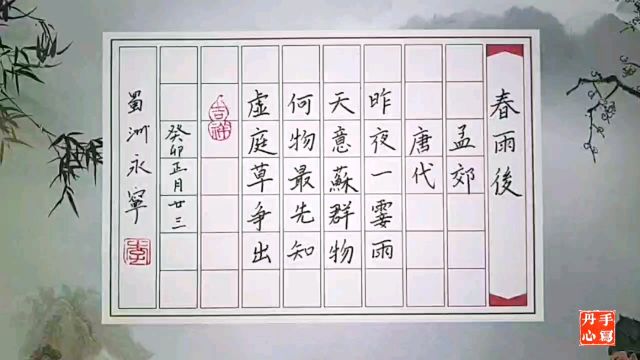 春雨後
孟郊
唐代
昨夜一霎雨
天意蘇群物
何物最先知
虛庭草爭出
吉祥
癸卯正月廿三
蜀洲永寧
手寫
丹心